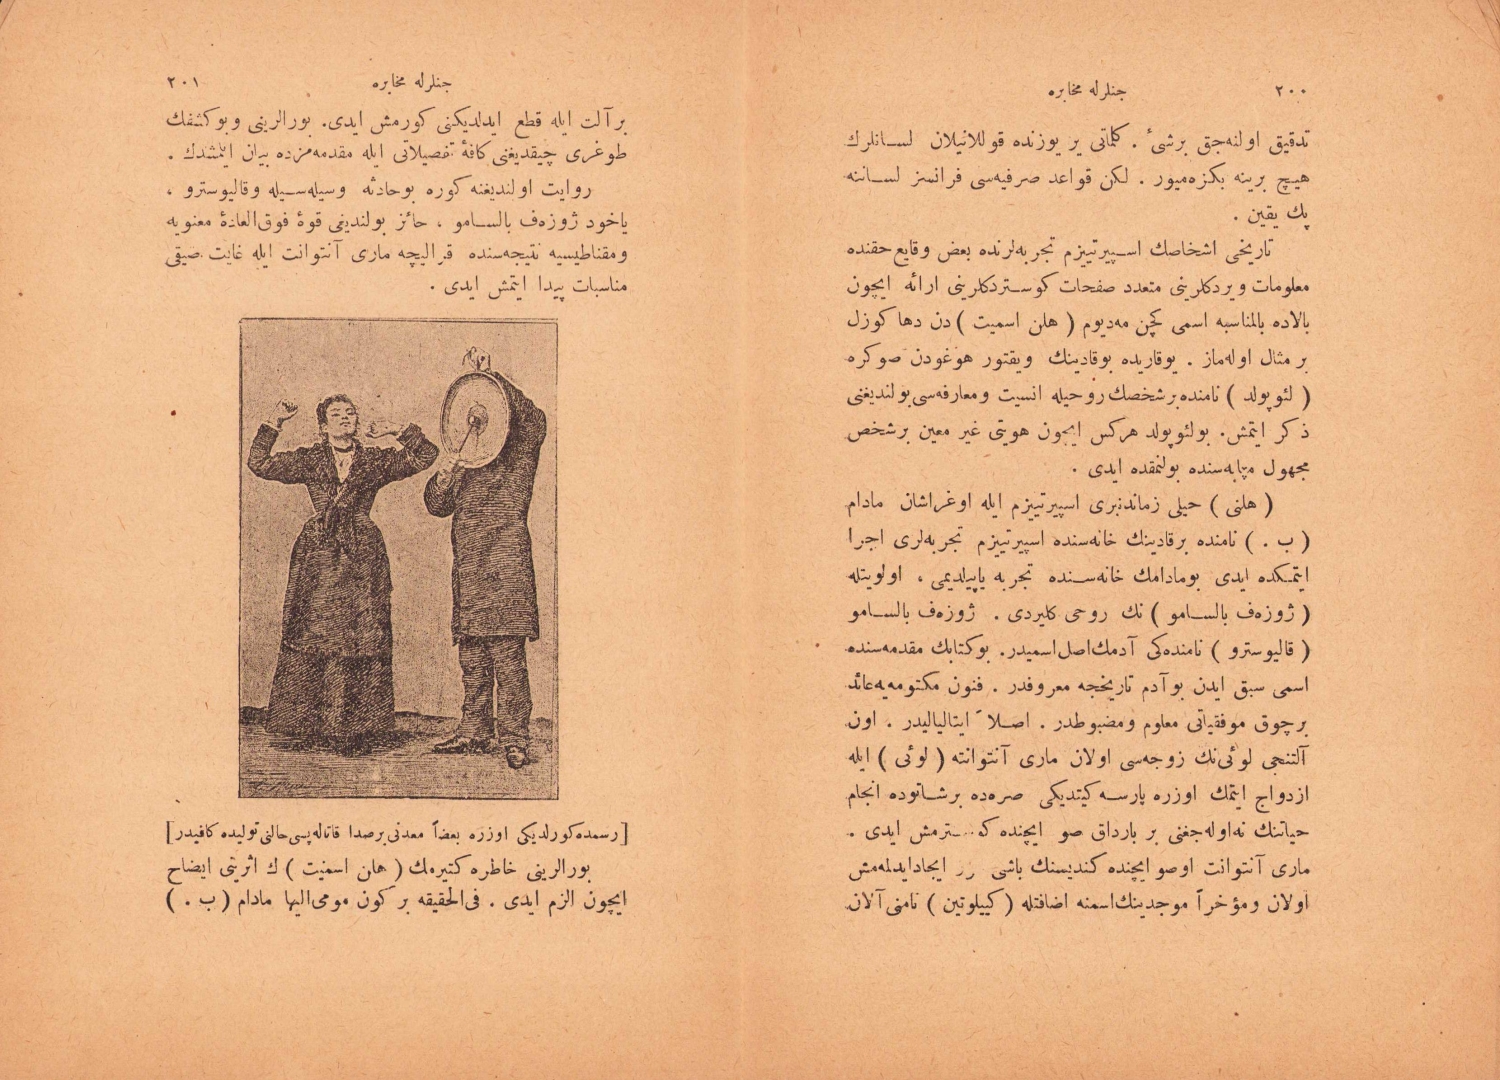 ٢٠٠
جنلرله مخابره
تدقیق اولنه‌جق برشیٔ . کلماتی یر یوزنده قوللانیلان لسانلرك
هیچ برینه بکزه‌میور . لکن قواعد صرفیه‌سی فرانسز لساننه
پك یقین .
تاریخی اشخاصك اسپیرتیزم تجربه‌لرنده بعض وقایع حقنده
معلومات ویردکلرینی متعدد صفحات کوستردکلرینی ارائه ایچون
بالاده بالمناسبه اسمی کچن مه‌دیوم ( هلن اسمیت ) دن دها کوزل
بر مثال اوله‌ماز . یوقاریده بوقادینك ویقتور هوغودن صوکره
( لئوپولد ) نامنده برشخصك روحیله انسیت ومعارفه‌سی بولندیغنی
ذکر ایتمش. بولئوپولد هرکس ایچون هویتی غیر معین برشخص
مجهول مثابه‌سنده بولنمقده ایدی .
( هلنی ) خیلی زماندنبری اسپیرتیزم ایله اوغراشان مادام
( ب . ) نامنده برقادینك خانه‌سنده اسپیرتیزم تجربه‌لری اجرا
ایتمکده ایدی بومادامك خانه‌سنده تجربه یاپیلدیمی ، اولویتله
( ژوزه‌ف بالسامو ) نك روحی کلیردی . ژوزه‌ف بالسامو
( قالیوسترو ) نامنده‌کی آدمك اصل اسمیدر. بوکتابك مقدمه‌سنده
اسمی سبق ایدن بوآدم تاریخجه معروفدر . فنون مکتومه‌یه عائد
برچوق موفقیاتی معلوم ومضبوطدر . اصلاً ایتالیالیدر . اون
آلتنجی لوئی‌نك زوجه‌سی اولان ماری آنتوانته ( لوئی ) ایله
ازدواج ایتمك اوزره پارسه کیتدیکی صره‌ده برشاتوده انجام
حیاتنك نه‌اوله‌جغنی بر بارداق صو ایچنده کوسترمش ایدی .
ماری آنتوانت اوصو ایچنده کندیسنك باشی ایجادایدلمه‌مش
اولان ومؤخراً موجدینك اسمنه اضافتله ( کییلوتین ) نامنی آلان
٢٠١
جنلرله مخابره
برآلت ایله قطع ایدلدیکنی کورمش ایدی. بورالرینی وبوکشفك
طوغری چیقدیغنی کافهٔ تفصیلاتی ایله مقدمه‌مزده بیان ایلمشدك .
روایت اولندیغنه کوره بوحادثه وسیله‌سیله وقالیوسترو ،
یاخود ژوزه‌ف بالسامو ، حائز بولندیغی قوهٔ فوق‌العادهٔ معنویه
ومقناطیسیه نتیجه‌سنده قرالیچه ماری آنتوانت ایله غایت صیقی
مناسبات پیدا ایتمش ایدی .
[رسمده‌کورلدیکی اوزره بعضاً معدنی برصدا قاتاله‌پسی‌حالنی‌تولیده کافیدر]
بورالرینی خاطره کتیره‌رك ( هلن اسمیت ) ك اثریتی ایضاح
ایچون الزم ایدی . فی‌الحقیقه بر کون مومی‌الیها مادام ( ب . )